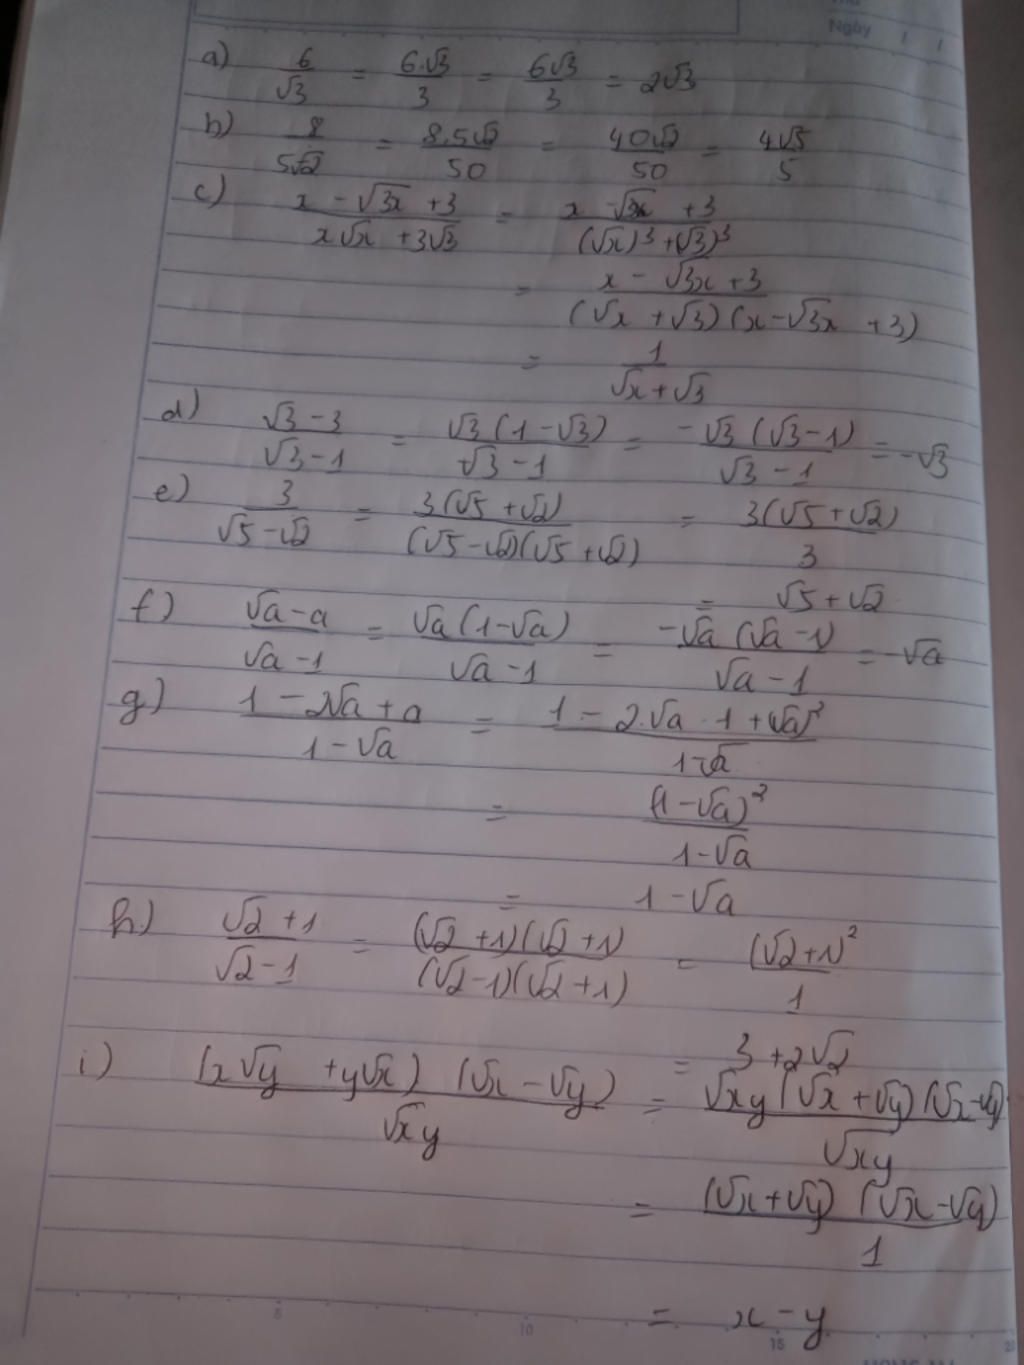 Ngày / /
a) 6/√3 = 6.√3/3 = 6√3/3 = 2√3
b) 8/5√2 = 8.5√2/50 = 40√2/50 = 4√5/5
c) x - √3x + 3/x√x + 3√3 = x - √3x + 3/(√x)³ + (√3)³
= x - √3x + 3/(√x + √3)(x - √3x + 3)
= 1/√x + √3
d) √3 - 3/√3 - 1 = √3(1 - √3)/√3 - 1 = -√3(√3 - 1)/√3 - 1 = -√3
e) 3/√5 - √2 = 3(√5 + √2)/(√5 - √2)(√5 + √2) = 3(√5 + √2)/3
= √5 + √2
f) √a - a/√a - 1 = √a(1 - √a)/√a - 1 = -√a(√a - 1)/√a - 1 = -√a
g) 1 - 2√a + a/1 - √a = 1 - 2.√a.1 + (√a)²/1 - √a
= (1 - √a)²/1 - √a
= 1 - √a
h) √2 + 1/√2 - 1 = (√2 + 1)(√2 + 1)/(√2 - 1)(√2 + 1) = (√2 + 1)²/1
= 3 + 2√2
i) (x√y + y√x)(√x - √y)/√xy = √xy(√x + √y)(√x - √y)/√xy
= (√x + √y)(√x - √y)/1
= x - y
5 10 15